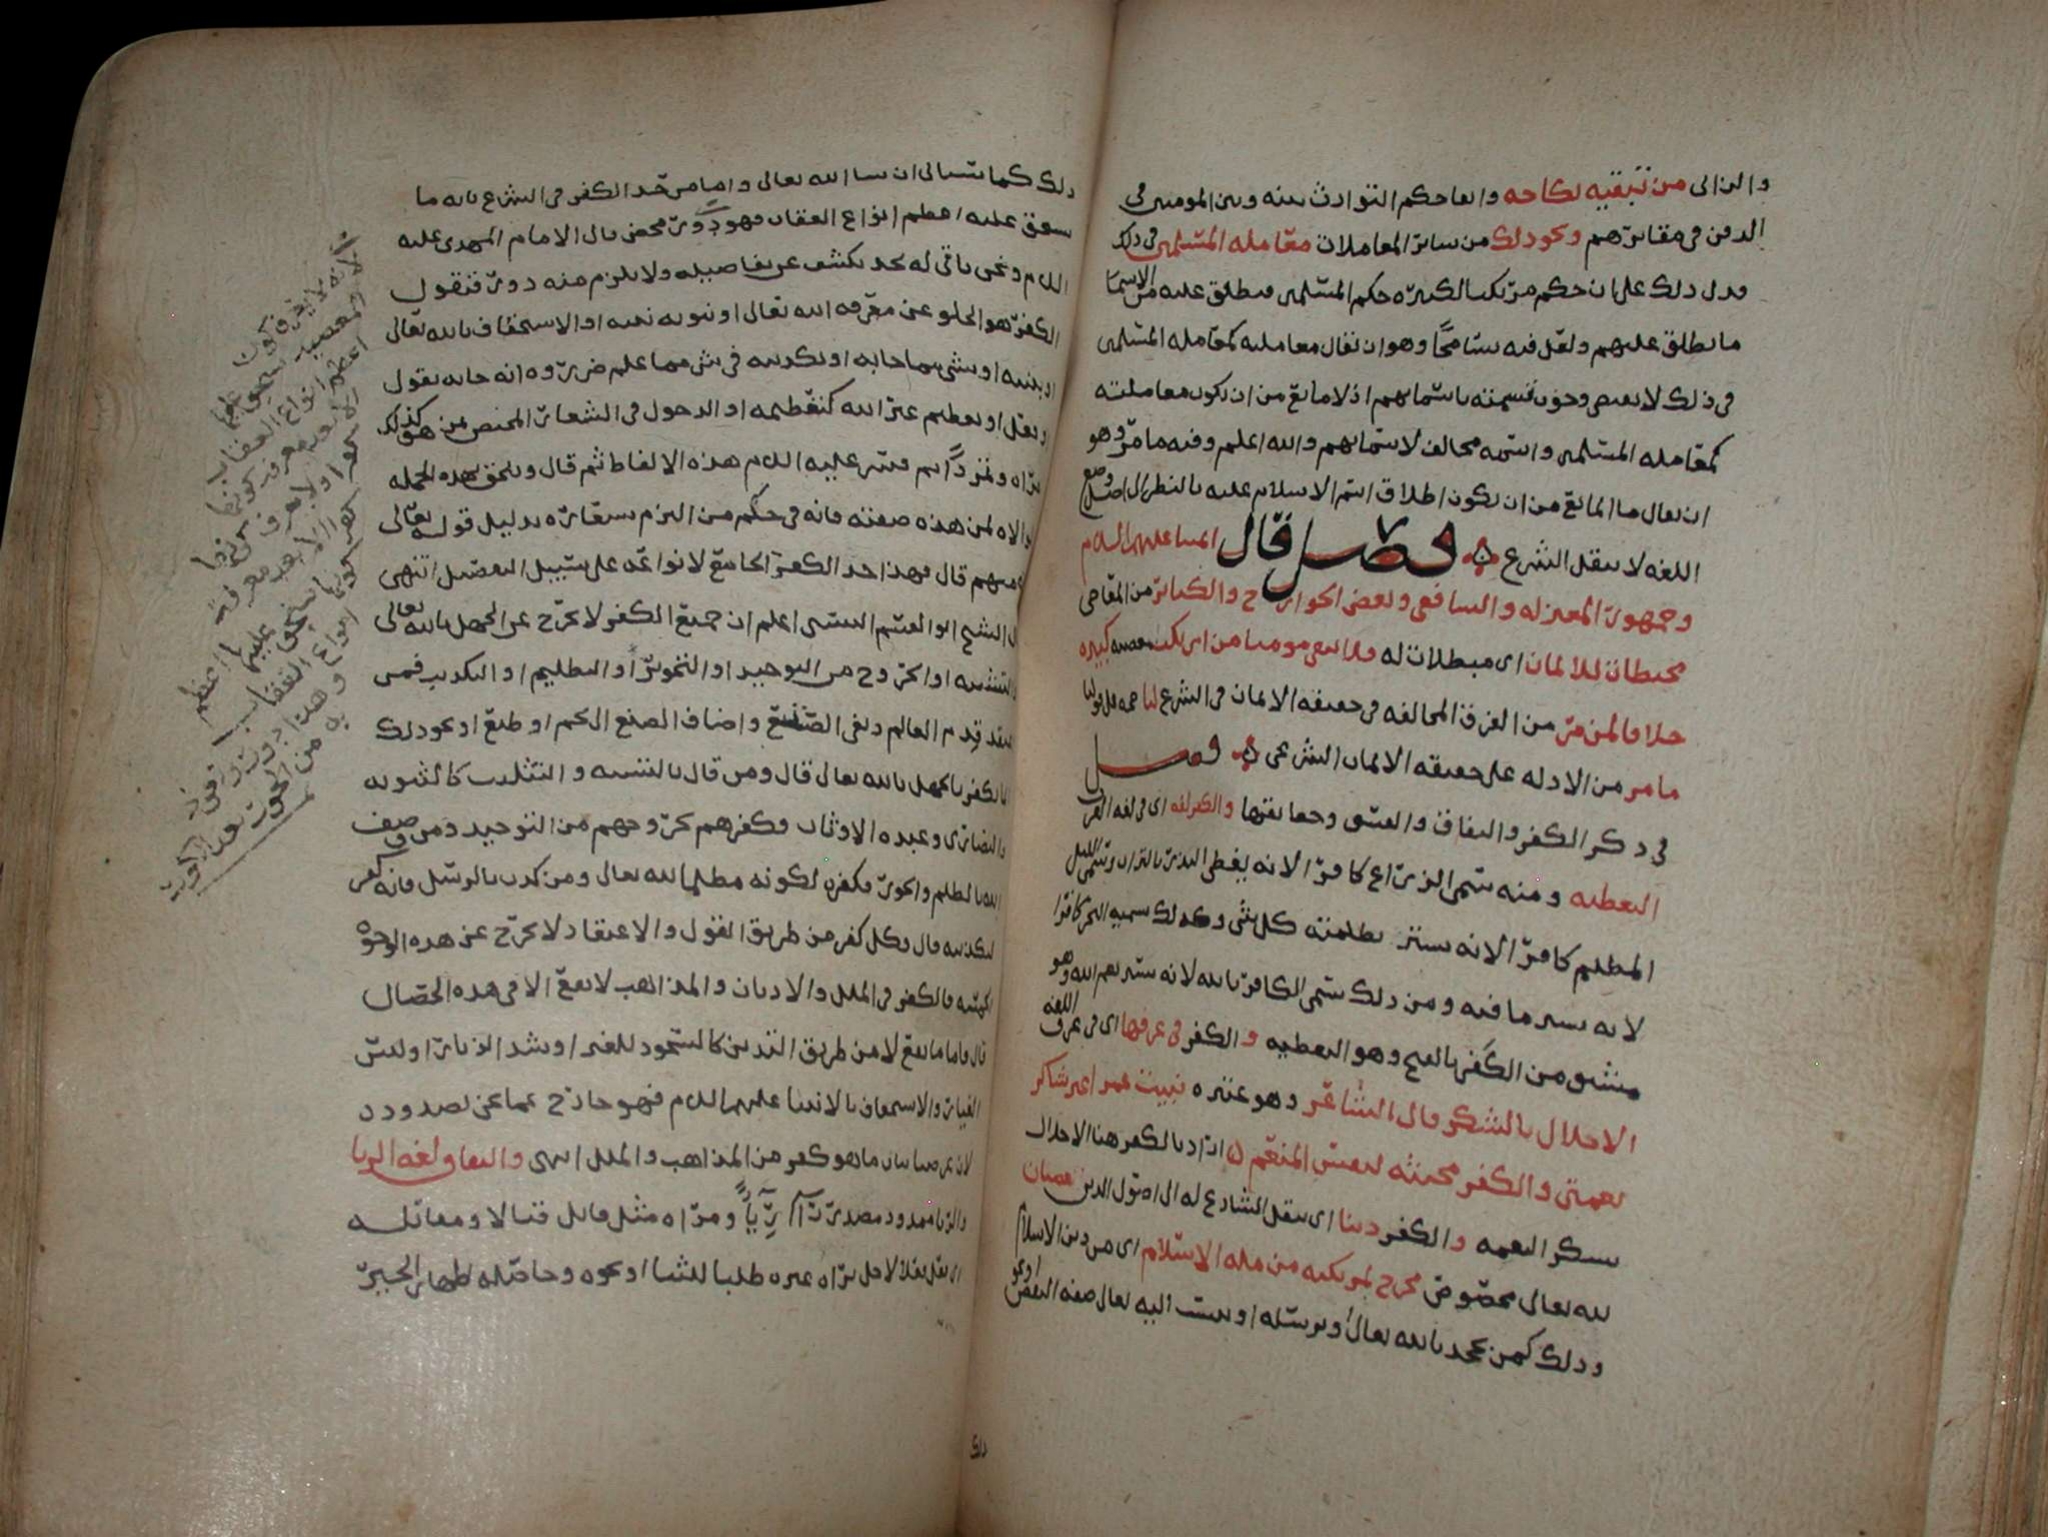 والزاني من تبقيه نكاحه وابقا حكم التوارث بينه وبين المومنين في
الدفن في مقابرهم ونحو ذلك من سائر المعاملات معامله المسلمين في ذلك
فدل ذلك على ان حكم مرتكب الكبيره حكم المسلمين فيطلق عليه من الاسما
ما يطلق عليهم ولعل فيه تسامحًا وهو ان يقال معاملته كمعامله المسلمين
في ذلك لا يقتضي وجوب تسميته باسمايهم اذ لا مانع من ان يكون معاملته
كمعامله المسلمين واسمه مخالف لاسمايهم والله اعلم وفيه ما مرّ وهو
ان يقال ما المانع من ان يكون اطلاق اسم الاسلام عليه بالنظر الى اصل وضع
اللغه لا بنقل الشرع فصل قال ايمتنا عليهم السلام
وجمهور المعتزله والشافعي وبعض الخوارج والكبائر من المعاصي
محبطات للايمان اي مبطلات له فلا يبقى مومنا من ارتكب معصيه كبيره
خلافا لمن مرّ من الفرق المخالفه في حقيقه الايمان في الشرع لنا حجه على قولنا
ما مر من الادله على حقيقه الايمان الشرعي فصل
في ذكر الكفر والنفاق والفسق وحقائقها والكفر لغه اي في لغه العرب
التغطيه ومنه سمي الزراع كافرًا لانه يغطي البذر بالتراب وسمي الليل
المظلم كافرًا لانه يستر بظلمته كل شي وكذلك سميه البحر كافرا
لانه يستر ما فيه ومن ذلك سمي الكافر بالله لانه ستر نعم الله وهو
مشتق من الكَفر بالفتح وهو التغطيه والكفر في عرفها اي في عرف اللغه
الاخلال بالشكر قال الشاعر وهو عنتره نبيت عمرا غير شاكر
نعمتي والكفر مخبثه لنفس المنعم اراد بالكفر هنا الاخلال
بشكر النعمه والكفر دينا اي بنقل الشارع له الى اصول الدين عصيان
لله تعالى مخصوص مخرج لمرتكبه من مله الاسلام اي من دين الاسلام
وذلك كمن يجحد بالله تعالى او برسله او ينسب اليه تعالى صفه النقص او نحو
ذلك
ذلك كما سياتي ان شا الله تعالى واما من حد الكفر في الشرع بانه ما
يستحق عليه اعظم انواع العقاب فهو دور محض قال الامام المهدي عليه
السلام ونحن ناتي له بحد يكشف عن تفاصيله ولا يلزم منه دور فنقول
الكفر هو الخلو عن معرفه الله تعالى او نبوه نبيه او الاستخفاف بالله تعالى
او بنبيه او بشي مما جا به او تكذيبه في شي مما علم ضروره انه جا به بقول
او فعل او تعظيم غير الله كتعظيمه او الدخول في الشعائر المختص بمن هو كذلك
قال فهذا حد الكفر الجامع لانواعه على سبيل التفصيل انتهى
قال الشيخ ابو القسم البستي اعلم ان جميع الكفر لا يخرج عن الجهل بالله تعالى
والتشبيه او الخروج من التوحيد او التجوير او التظليم او التكذيب فمن
يعتقد قِدم العالم ونفى الصانع واضاف الصنع الى نجم او طبع او نحو ذلك
فانما يكفر بالجهل بالله تعالى قال ومن قال بالتشبيه والتثليث كالثنويه
والنصارى وعبده الاوثان فكفرهم بخروجهم من التوحيد ومن وصف
الله بالظلم والجور فكفره لكونه مظلما لله تعالى ومن كذب بالرسل فانه كفر
لتكذيبه قال وكل كفر من طريق القول والاعتقاد لا يخرج عن هذه الوجوه
الخمسه فالكفر في الملل والاديان والمذاهب لا يقع الا في هذه الخصال
قال فاما ما يقع لا من طريق التدين كالسجود للغير او شد الزنار او لبس
الغيار والاستخفاف بالانبيا عليهم السلام فهو خارج عما نحن بصدده
لان غرضنا بيان ما هو كفر من المذاهب والملل انتهى والنفاق لغه الريا
والريا ممدود مصدر رَآأ رِيَآءً ومرآه مثل قاتل قتالا ومقاتله
اي يفعل فعلا لاجل يراه غيره طلبا للثنا او نحوه وحاصله اظهار الخير
لانه لا يعرف كون
المعصيه يستحق عليها
اعظم انواع العقاب
الا بعد معرفه كونها
كفرا ولا يعرف كونها
كفرا الا بعد معرفه
كونها يستحق عليها اعظم
انواع العقاب
وهذا دور